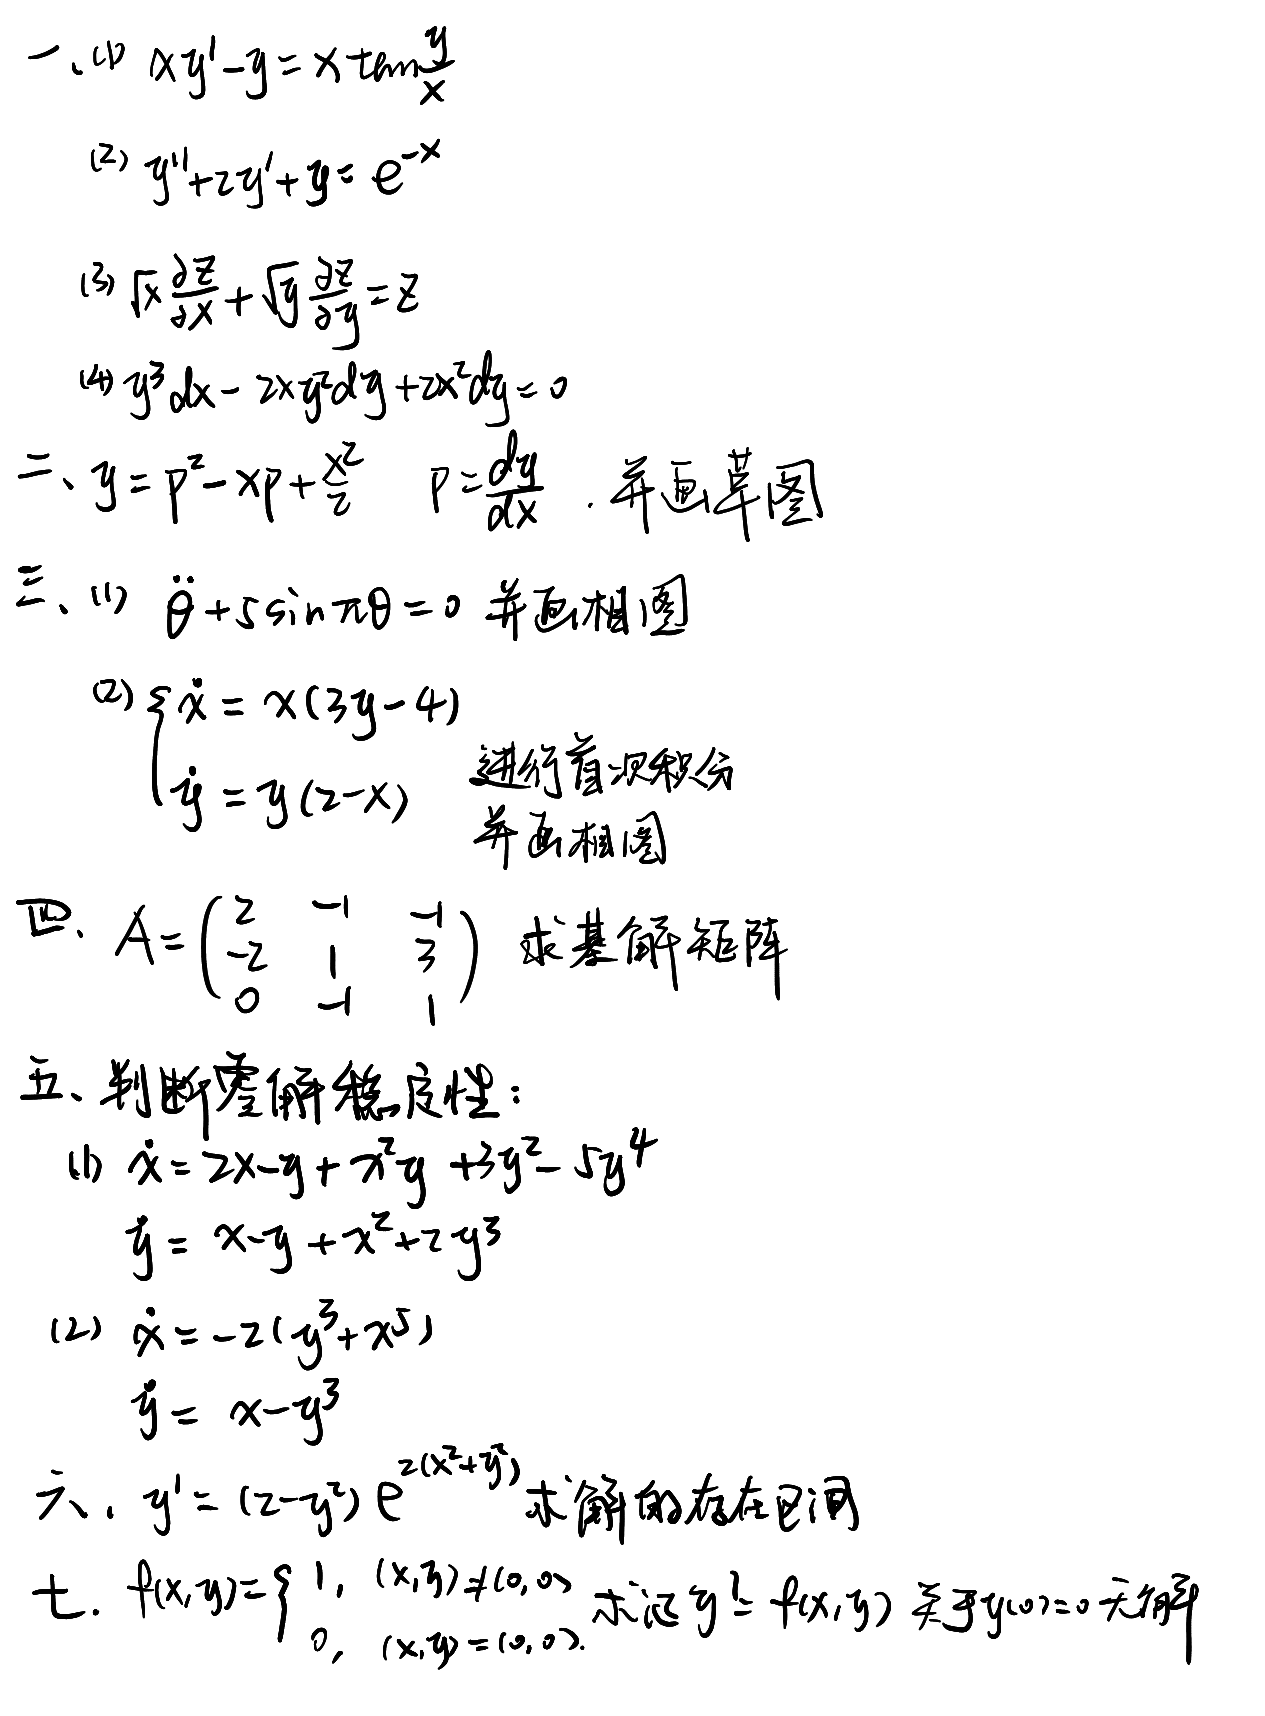 一、(1) xy' - y = x tan y/x
(2) y'' + 2y' + y = e^{-x}
(3) √x ∂z/∂x + √y ∂z/∂y = z
(4) y³dx - 2xy²dy + 2x²dy = 0
二、y = p² - xp + x²/2  p = dy/dx . 并画草图
三、(1) θ̈ + 5sinπθ = 0 并画相图
(2) { ẋ = x(3y-4)
ẏ = y(2-x) 进行首次积分
并画相图
四、A = (2 -1 -1
-2 1 3
0 -1 1) 求基解矩阵
五、判断零解稳定性:
(1) ẋ = 2x - y + x²y + 3y² - 5y⁴
ẏ = x - y + x² + 2y³
(2) ẋ = -2(y³ + x⁵)
ẏ = x - y³
六、y' = (2-y²)e^{2(x²+y²)} 求解的存在区间
七. f(x,y) = { 1, (x,y)≠(0,0) 求证 y' = f(x,y) 关于y(0)=0无解
0, (x,y)=(0,0).